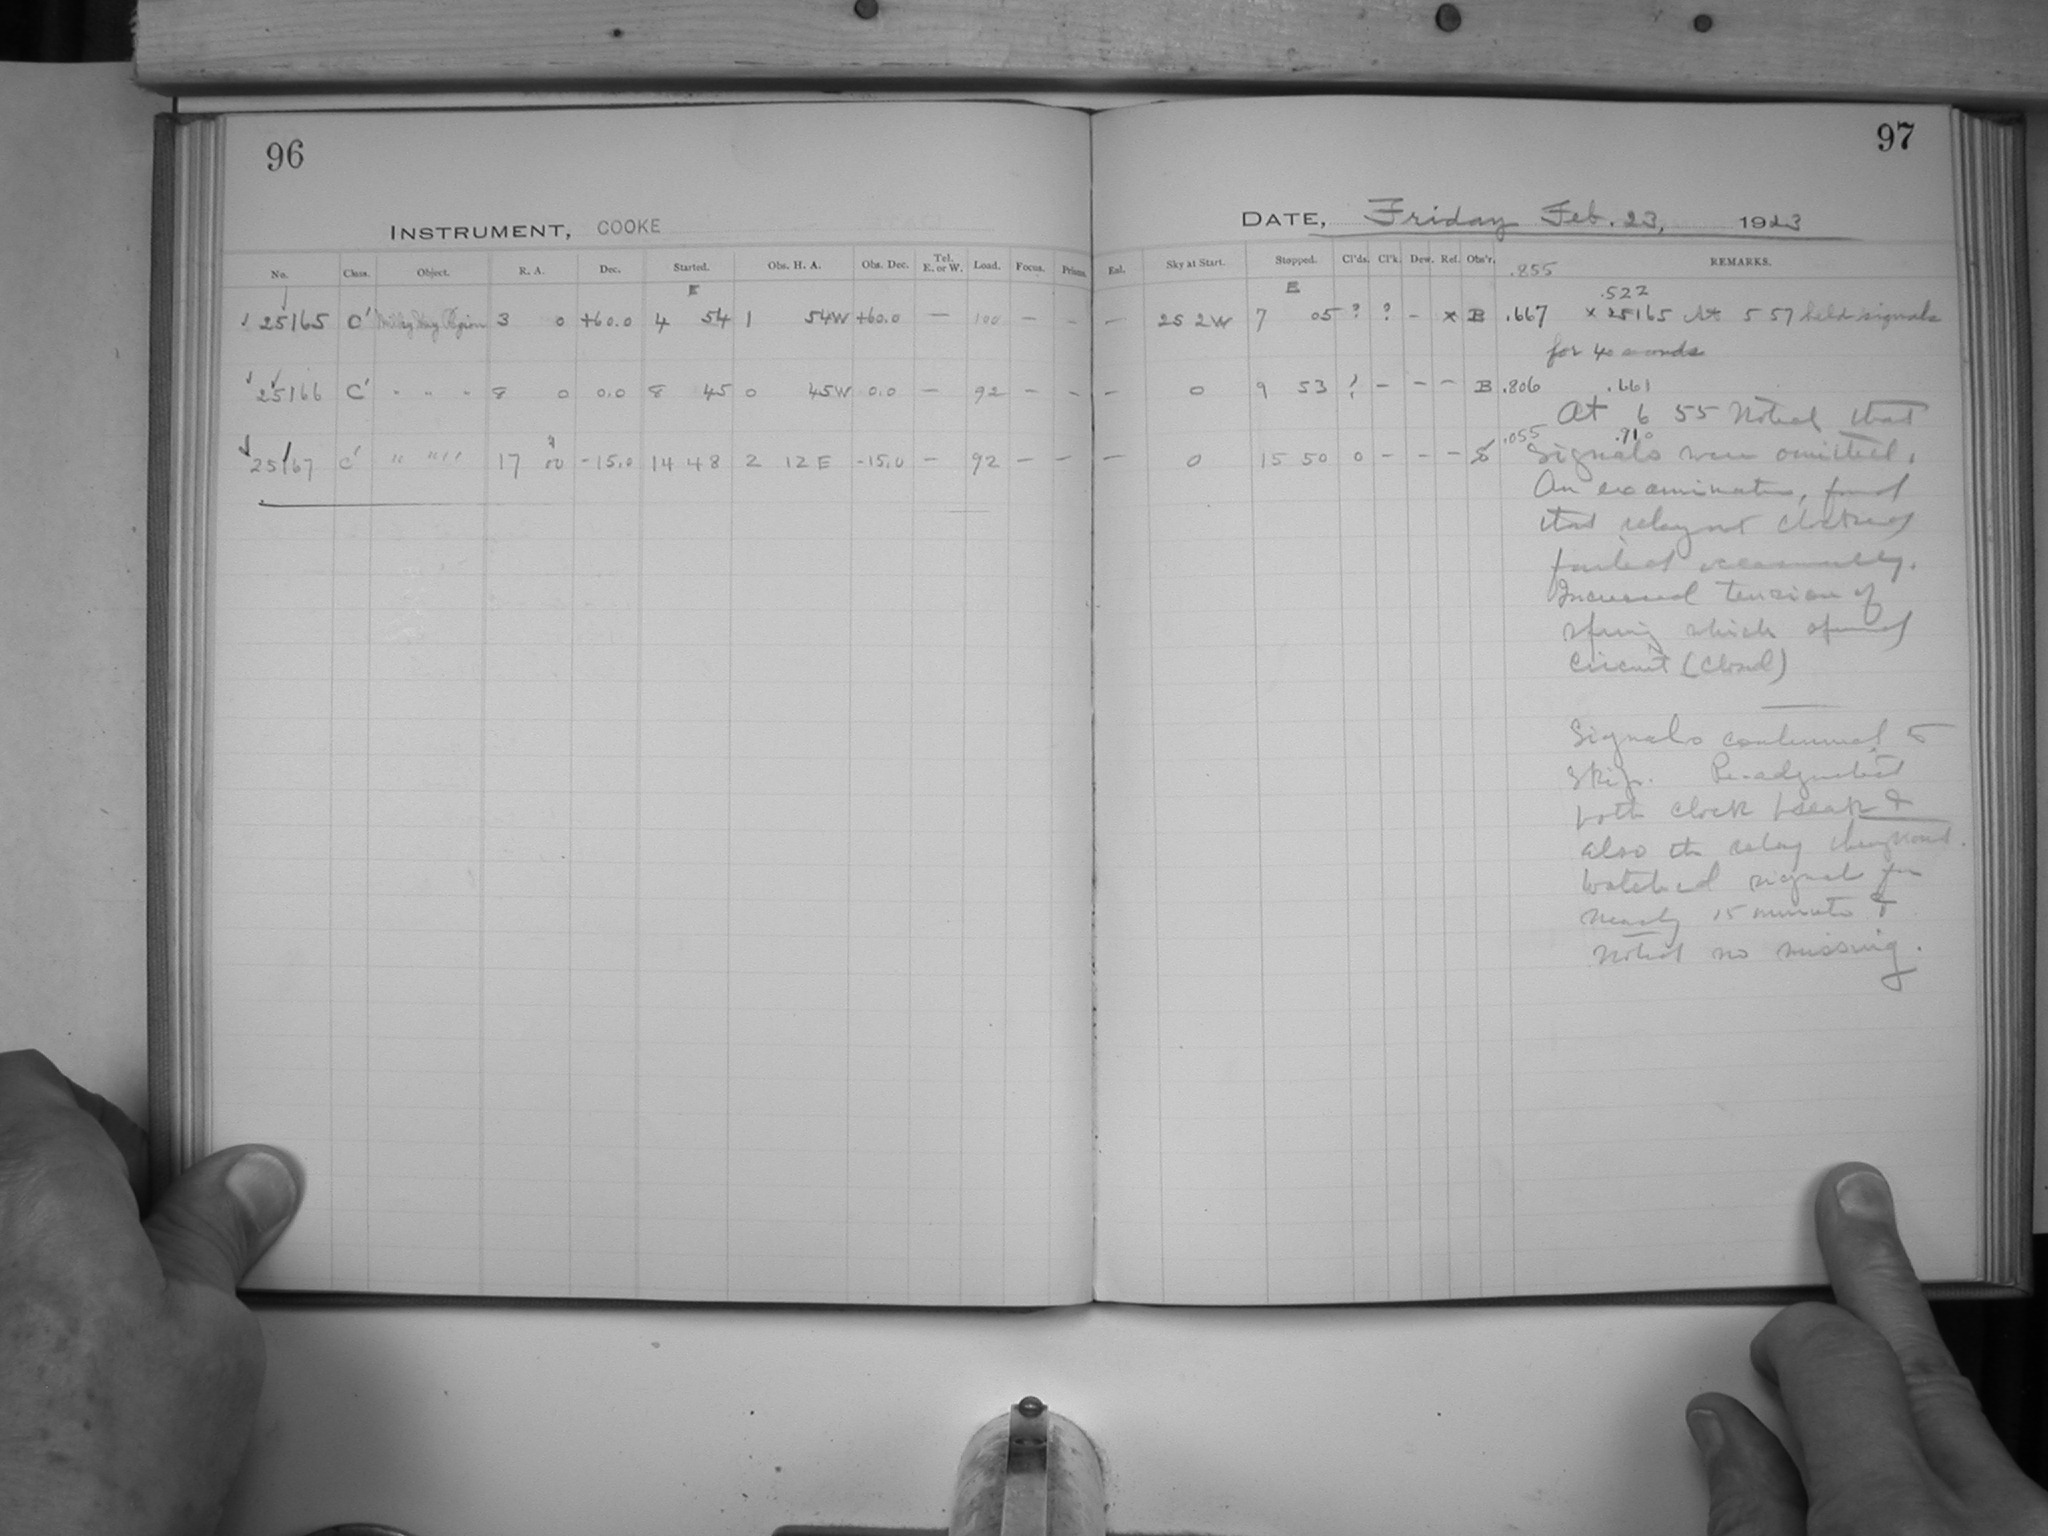 96
97
INSTRUMENT, COOKE
DATE, Friday Feb. 23, 1923
No. Class. Object. R. A. Dec. Started. Obs. H. A. Obs. Dec. Tel. E. or W. Load. Focus. Prisms. Enl. Sky at Start. Stopped. Cl'ds. Cl'k. Dew. Ref. Obs'r. REMARKS.
.855
E E .522
25165 C' Milky Way Region 3 0 +60.0 4 54 1 54W +60.0 — 100 — — — 25 2W 7 05 ? ? — x B .667 x 25165 At 5 57 held signals
for 40 seconds
25166 C' " " " 8 0 0.0 8 45 0 45W 0.0 — 92 — — — 0 9 53 ? — — — B .806 .661
At 6 55 Noted that
.055 .910
25167 C' " " " 17 00 -15.0 14 48 2 12 E -15.0 — 92 — — — 0 15 50 0 — — — Signals were omitted.
An examination, found
that relay not
failed occasionally.
Increased tension of
spring which opened
circuit (closed)
Signals continued to
skip. Re-adjusted
both clock break &
also the relay
Watched signal for
nearly 15 minutes &
noted no missing.